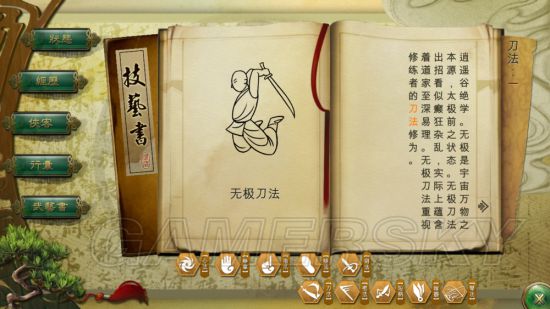 狀態
經歷
俠客
行囊
武藝書
技藝書
无极刀法
刀法：一
逍遥谷绝学。无极是宇宙万物之
本源，太极前之状态。无极刀法
出招看似癫狂杂乱，实际上蕴含
着道家至深易理。无极刀法重视
修炼者的刀法修为。
GAMERSKY